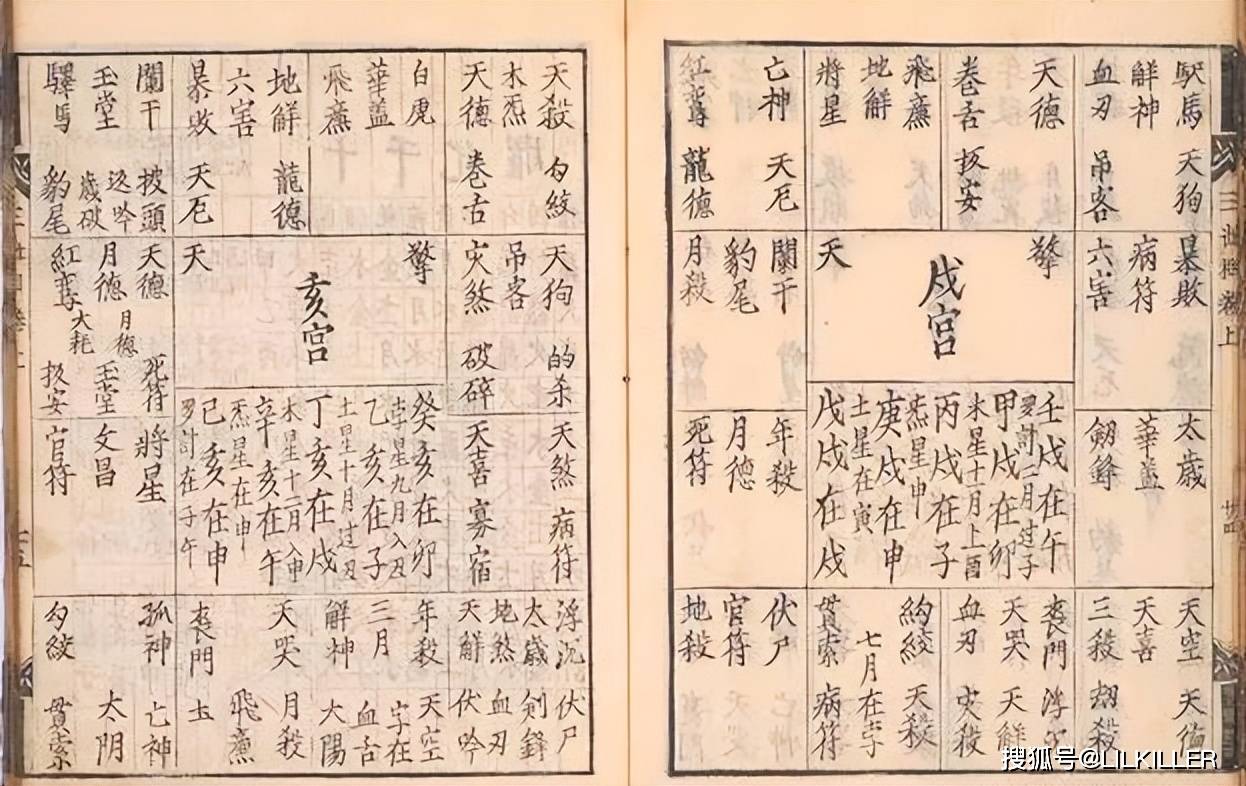 馹馬 天狗
解神
血刃 吊客
天德
卷舌 扳安
飛廉
地解
將星
亡神 天厄
紅鸞 龍德
暴敗
病符
六害
擎
天
戌宮
闌干
豹尾
月殺
太歲
華盖
劔鋒
壬戌在午
羅計二月过子
甲戌在卯
木星十一月上酉
丙戌在子
炁星申
庚戌在申
土星在寅
戊戌在戌
年殺
月德
死符
天空
天喜
三殺 刼殺
喪門
天哭 天解
血刃 灾殺
約絞 天殺
七月在孛
貫索 病符
伏尸
官符
地殺
三世
卷上
廿四
天殺 勾絞
木炁
天德 卷舌
白虎
華盖
飛廉
地解 龍德
六害
暴敗 天厄
闌干 披頭
玉堂 返吟 歲破
驛馬 豹尾
天狗 的杀
吊客
灾煞 破碎
擎
天
亥宮
天德 月德 死符
月德 大耗 玉堂
紅鸞 扳安
天煞 病符
天喜 寡宿
癸亥在卯
孛星九月入丑
乙亥在子
土星十月过丑
丁亥在戌
木星十二月入申
辛亥在午
炁星在申
己亥在申
羅計在子午
將星
文昌
官符
浮沉 伏尸
太歲 剑鋒
地煞 血刃
天解 伏吟
年殺 天空
三月 字在 血舌
解神 大陽
天哭 月殺
飛廉
喪門
孤神 亡神
太阴
勾絞 貫索
十五
搜狐号@LILKILLER